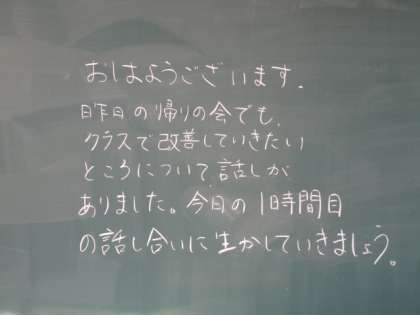 おはようございます.
昨日の帰りの会でも,
クラスで改善していきたい
ところについて話しが
ありました。今日の1時間目
の話し合いに生かしていきましょう。